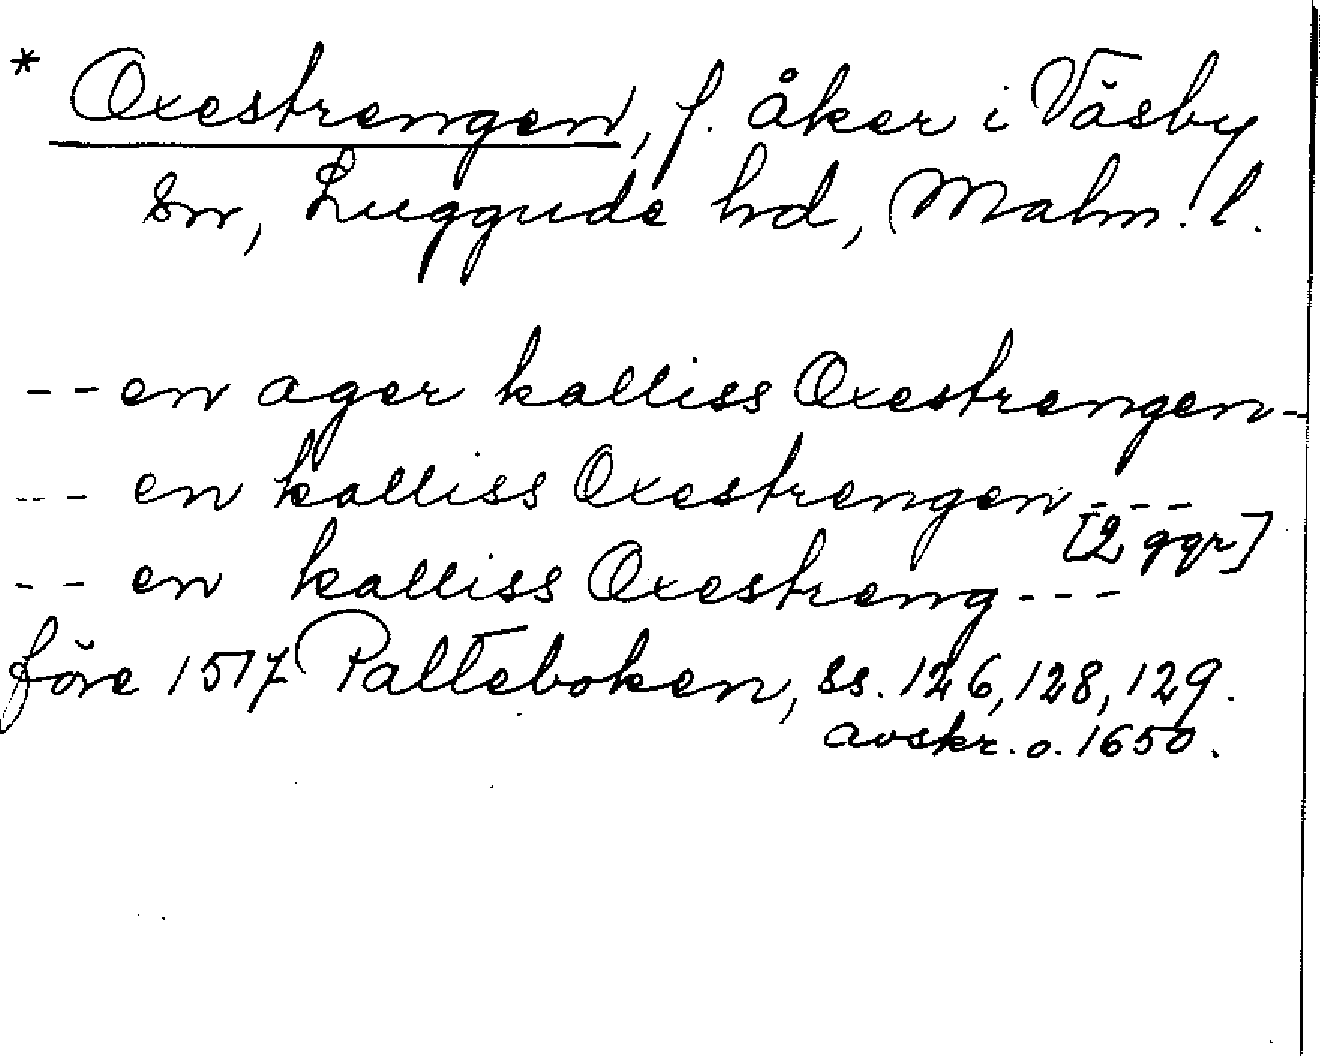 * Oxestrengen, f. åker i Väsby
sn, Luggude hd, Malm. l.
-- en ager kalliss Oxestrengen -
--- en kalliss Oxestrengen ---
[2 ggr]
-- en kalliss Oxestreng ---
före 1517 Palteboken, ss. 126, 128, 129.
avskr. o. 1650.